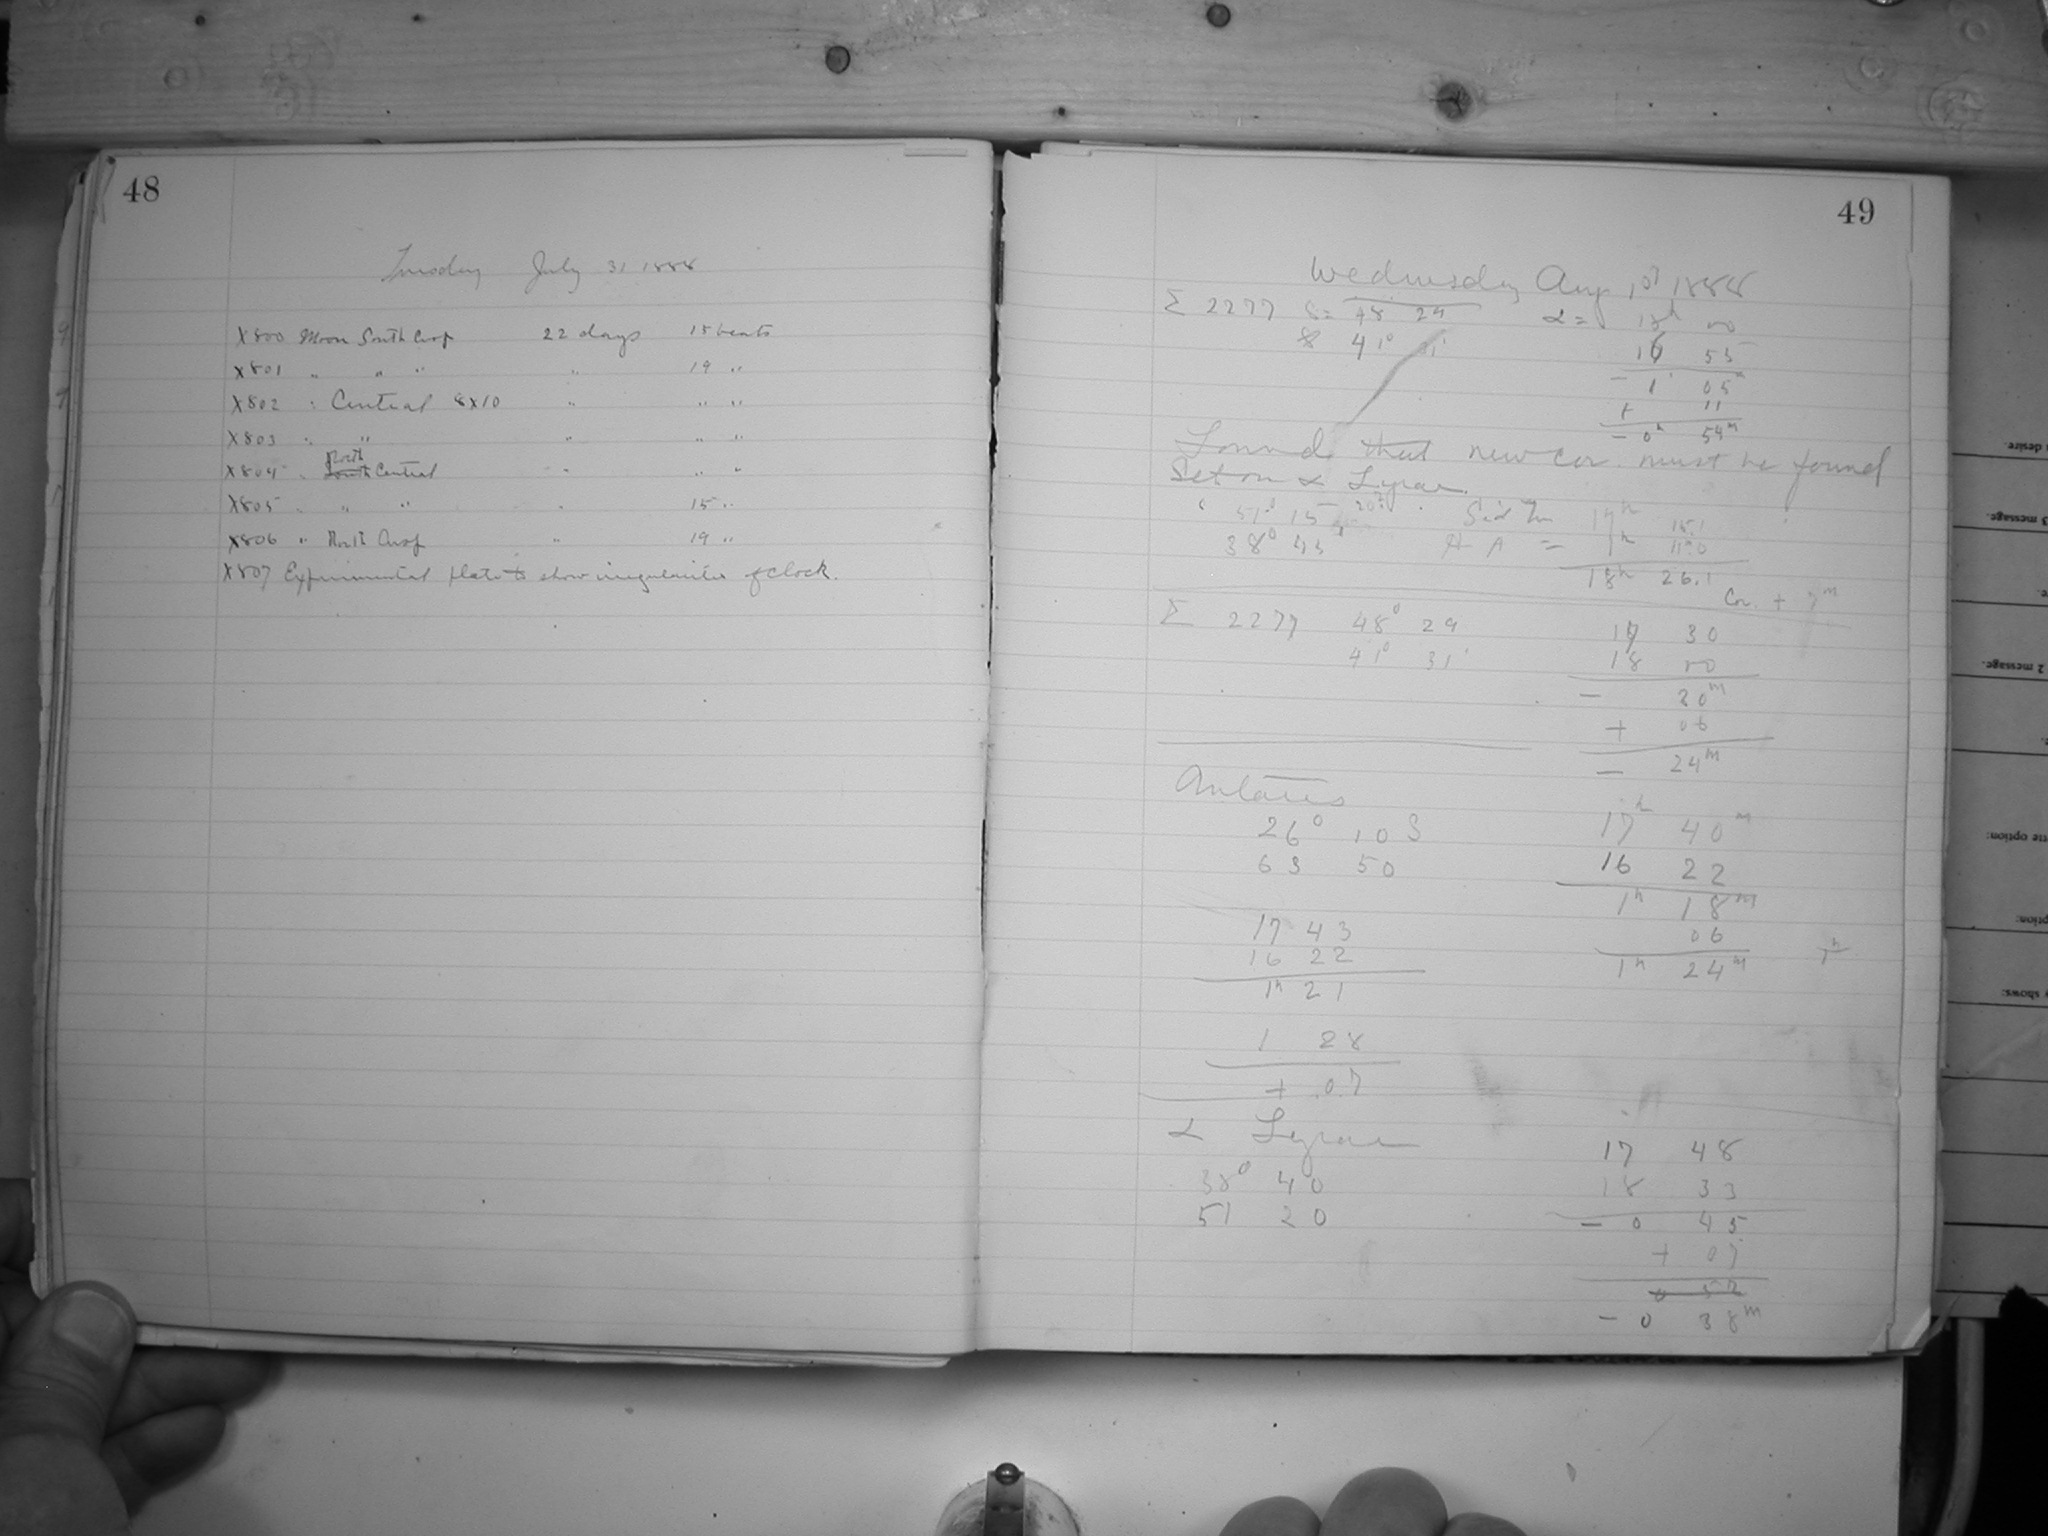 48
Tuesday July 31 1888
X800 Moon South Cusp 22 days 15 beats
X801 " " " " 19 "
X802 " Central 8x10 " " "
X803 " " " " "
North
X804 " South Central " " "
X805 " " " " 15 "
X806 " North Cusp " 19 "
X807 Experimental plate to show irregularities of clock.
49
Wednesday Aug 1st 1888
Σ 2277 δ = 48 29 α = 18h 00
41° 31'
16 55
- 1 05
+ 11
- 0h 54m
Found that new cor. must be found
Set on α Lyrae
51° 15 Sid Tm 17h 15.1
38° 45' H A = 1h 11.0
18h 26.1
Cor. + 7m
Σ 2277 48° 29 17 30
41° 31' 18 00
- 30m
+ 06
- 24m
Antares
26° 10 S 17h 40m
63 50 16 22
1h 18m
17 43 06
16 22 1h 24m
1h 21
1 28
+ .07
α Lyrae 17 48
38° 40 18 33
51 20 - 0 45
+ 07
0 52
- 0 38m